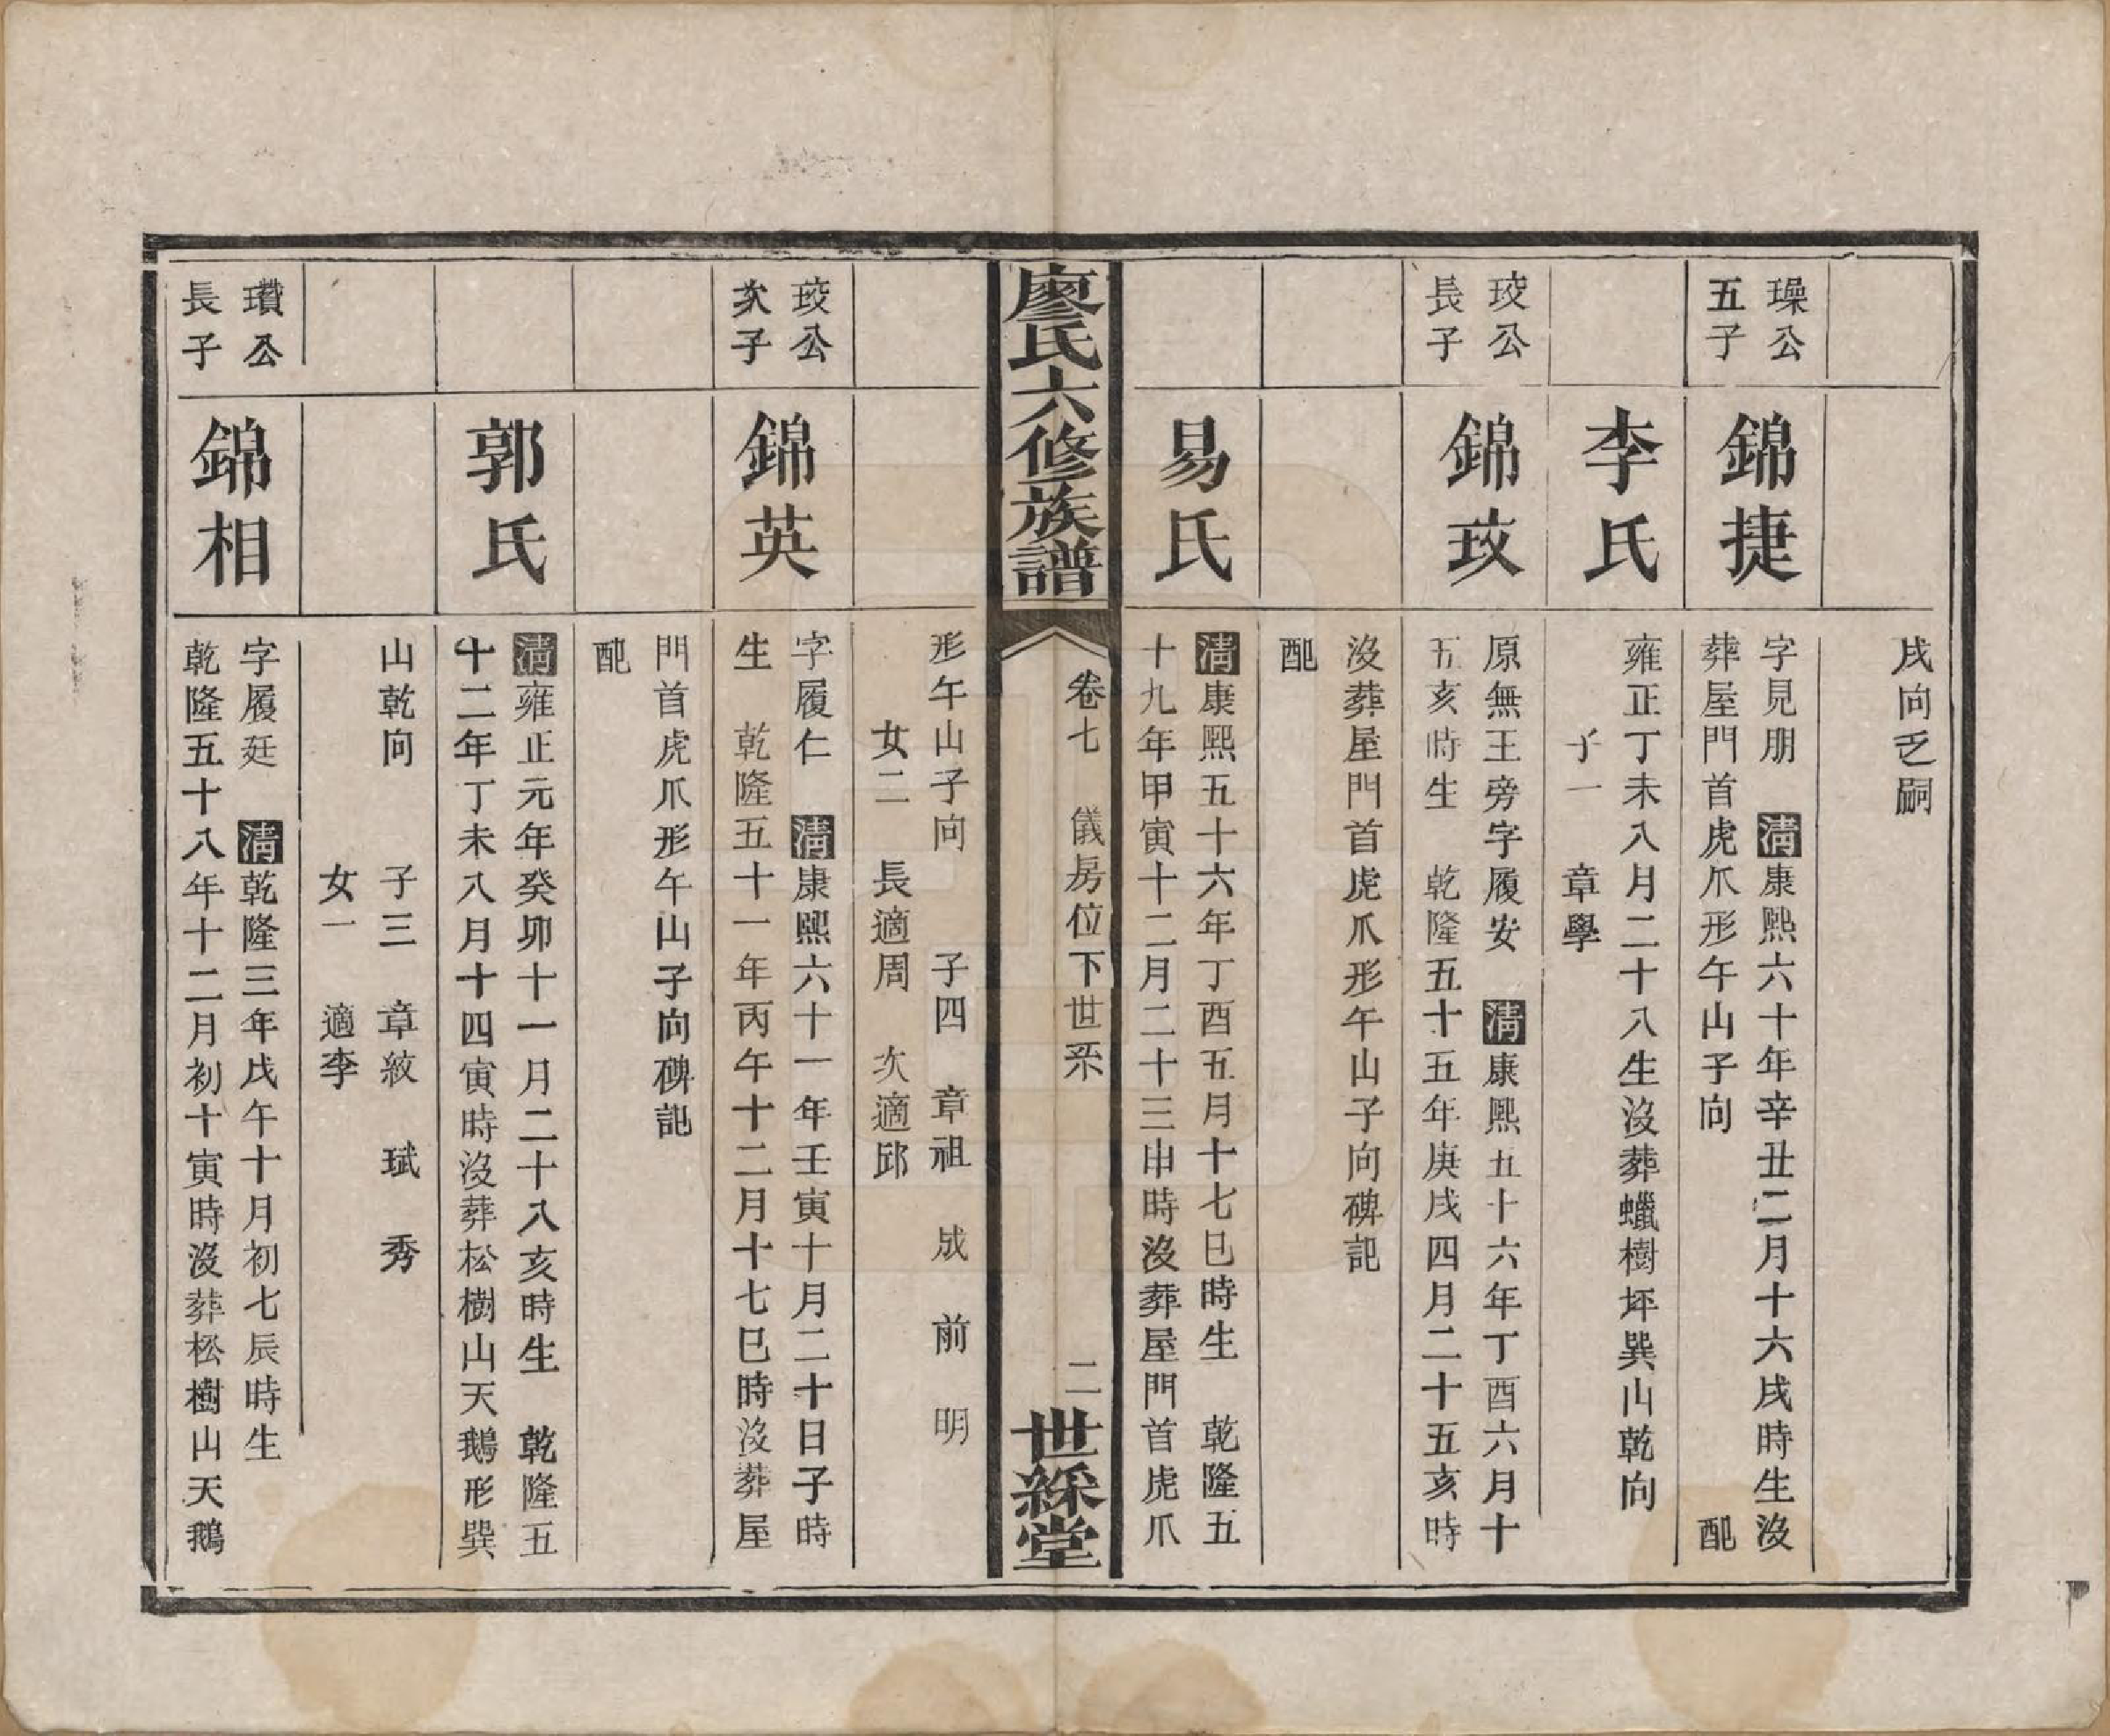 戌向乏嗣
璪公
五子
錦捷
字見朋　清康熙六十年辛丑二月十六戌時生沒
葬屋門首虎爪形午山子向　配
李氏
雍正丁未八月二十八生沒葬蠟樹坪巽山乾向
子一　章學
珓公
長子
錦玟
原無王旁字履安　清康熙五十六年丁酉六月十
五亥時生　乾隆五十五年庚戌四月二十五亥時
沒葬屋門首虎爪形午山子向碑記
配
易氏
清康熙五十六年丁酉五月十七巳時生　乾隆五
十九年甲寅十二月二十三申時沒葬屋門首虎爪
廖氏六修族譜
卷七　儀房位下世系　二
世綵堂
形午山子向　子四　章祖　成　前　明
女二　長適周　次適邱
珓公
次子
錦英
字履仁　清康熙六十一年壬寅十月二十日子時
生　乾隆五十一年丙午十二月十七巳時沒葬屋
門首虎爪形午山子向碑記
配
郭氏
清雍正元年癸卯十一月二十八亥時生　乾隆五
十二年丁未八月十四寅時沒葬松樹山天鵝形巽
山乾向　子三　章紋　珷　秀
女一　適李
瓚公
長子
錦相
字履廷　清乾隆三年戊午十月初七辰時生
乾隆五十八年十二月初十寅時沒葬松樹山天鵝